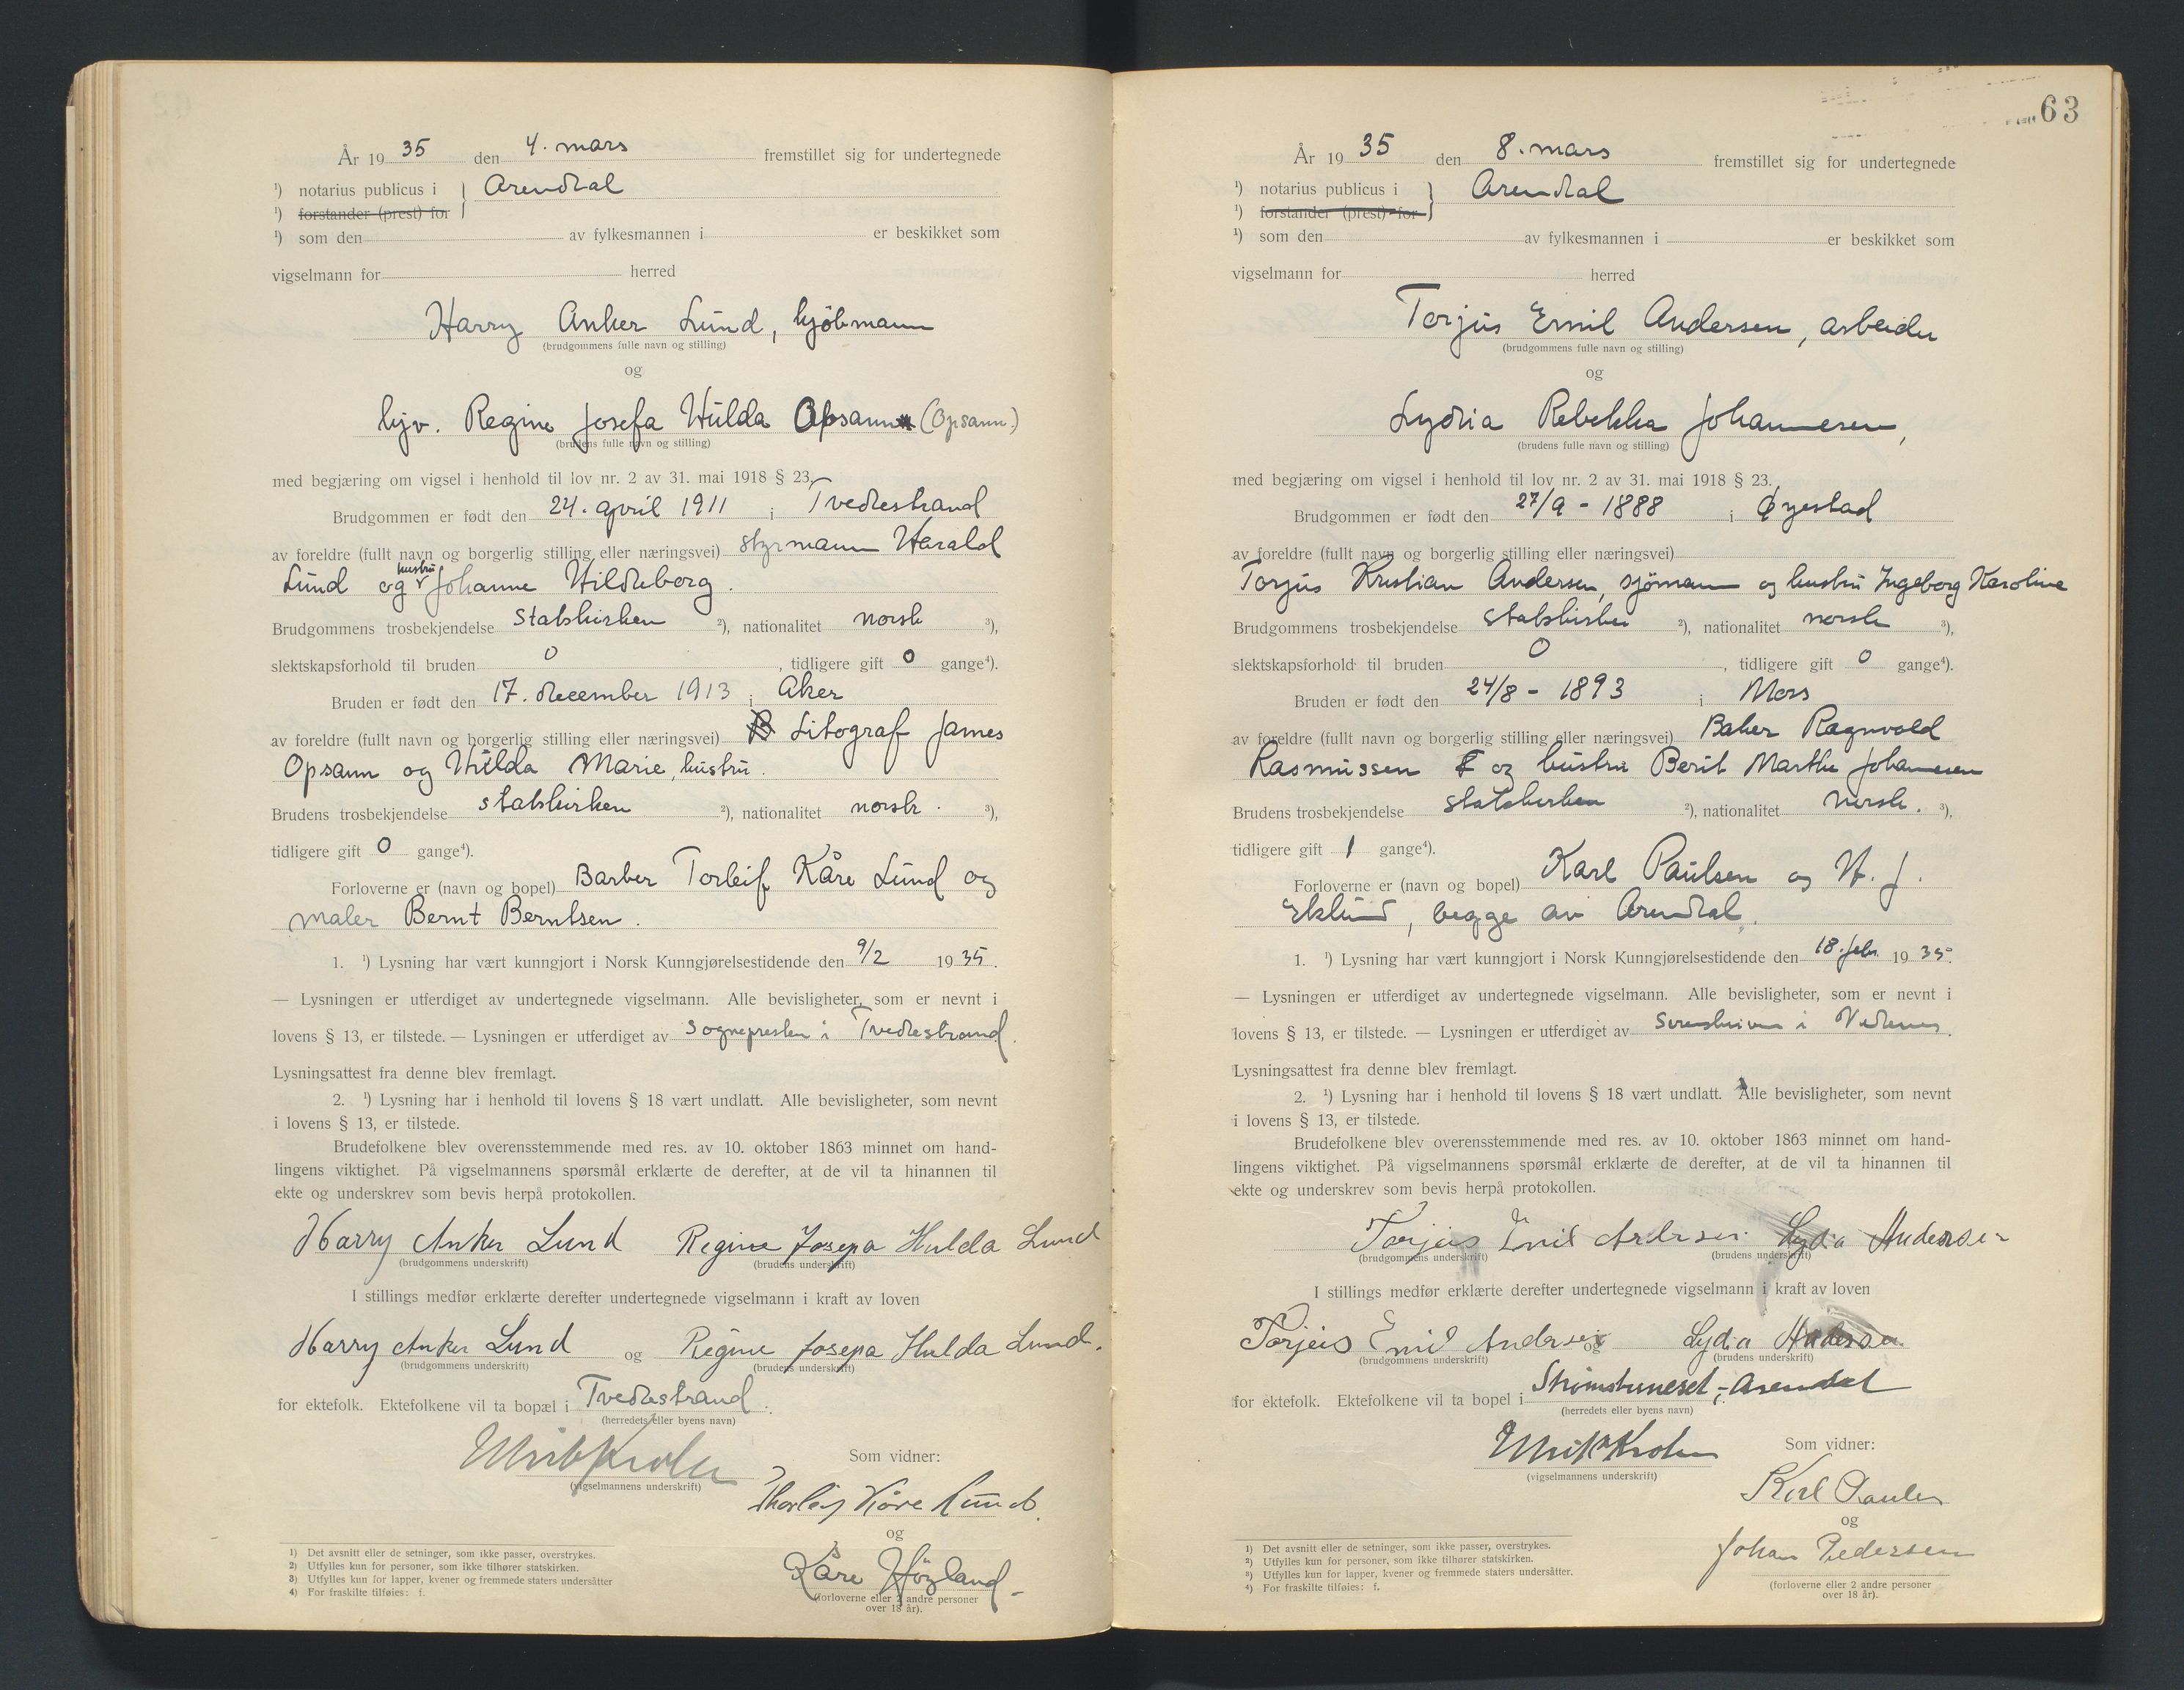 År 1935 den 4. mars fremstillet sig for undertegnede
¹) notarius publicus i } Arendal
¹) forstander (prest) for
¹) som den av fylkesmannen i er beskikket som
vigselmann for herred
Harry Anker Lund, kjöbmann
(brudgommens fulle navn og stilling)
og
hjv. Regine Josefa Hulda Opsann (Opsann.)
(brudens fulle navn og stilling)
med begjæring om vigsel i henhold til lov nr. 2 av 31. mai 1918 § 23.
Brudgommen er født den 24. april 1911 i Tvedestrand
av foreldre (fullt navn og borgerlig stilling eller næringsvei) styrmann Harald
Lund og hustru Johanne Hildeborg.
Brudgommens trosbekjendelse Statskirken ²), nationalitet norsk ³),
slektskapsforhold til bruden 0, tidligere gift 0 gange⁴).
Bruden er født den 17. december 1913 i Aker
av foreldre (fullt navn og borgerlig stilling eller næringsvei) Litograf James
Opsann og Hulda Marie, hustru.
Brudens trosbekjendelse statskirken ²), nationalitet norsk. ³),
tidligere gift 0 gange⁴).
Forloverne er (navn og bopel) Barber Torleif Kåre Lund og
maler Bernt Berntsen.
1. ¹) Lysning har vært kunngjort i Norsk Kunngjørelsestidende den 9/2 1935.
— Lysningen er utferdiget av undertegnede vigselmann. Alle bevisligheter, som er nevnt i
lovens § 13, er tilstede. — Lysningen er utferdiget av sognepresten i Tvedestrand.
Lysningsattest fra denne blev fremlagt.
2. ¹) Lysning har i henhold til lovens § 18 vært undlatt. Alle bevisligheter, som nevnt
i lovens § 13, er tilstede.
Brudefolkene blev overensstemmende med res. av 10. oktober 1863 minnet om hand-
lingens viktighet. På vigselmannens spørsmål erklærte de derefter, at de vil ta hinannen til
ekte og underskrev som bevis herpå protokollen.
Harry Anker Lund Regine Josepa Hulda Lund
(brudgommens underskrift) (brudens underskrift)
I stillings medfør erklærte derefter undertegnede vigselmann i kraft av loven
Harry Anker Lund og Regine Josepa Hulda Lund.
(brudgommens underskrift) (brudens underskrift)
for ektefolk. Ektefolkene vil ta bopæl i Tvedestrand.
(herredets eller byens navn)
Ulrik Krohn Som vidner:
(vigselmannens underskrift)
Thorleif Kåre Lund.
og
Kåre Høgland
(forloverne eller 2 andre personer
over 18 år).
1) Det avsnitt eller de setninger, som ikke passer, overstrykes.
2) Utfylles kun for personer, som ikke tilhører statskirken.
3) Utfylles kun for lapper, kvener og fremmede staters undersåtter
4) For fraskilte tilføies: f.
63
År 1935 den 8. mars fremstillet sig for undertegnede
¹) notarius publicus i } Arendal
¹) forstander (prest) for
¹) som den av fylkesmannen i er beskikket som
vigselmann for herred
Torjus Emil Andersen, arbeider
(brudgommens fulle navn og stilling)
og
Lydia Rebekka Johannesen,
(brudens fulle navn og stilling)
med begjæring om vigsel i henhold til lov nr. 2 av 31. mai 1918 § 23.
Brudgommen er født den 27/9 - 1888 i Øyestad
av foreldre (fullt navn og borgerlig stilling eller næringsvei)
Torjus Kristian Andersen, sjömann og hustru Ingeborg Karoline
Brudgommens trosbekjendelse statskirken ²), nationalitet norsk ³),
slektskapsforhold til bruden 0, tidligere gift 0 gange⁴).
Bruden er født den 24/8 - 1893 i Moss
av foreldre (fullt navn og borgerlig stilling eller næringsvei) Baker Ragnvald
Rasmussen og hustru Berit Marthe Johannesen
Brudens trosbekjendelse statskirken ²), nationalitet norsk. ³),
tidligere gift 1 gange⁴).
Forloverne er (navn og bopel) Karl Paulsen og H. J.
Eklund, begge av Arendal.
1. ¹) Lysning har vært kunngjort i Norsk Kunngjørelsestidende den 18. febr. 1935.
— Lysningen er utferdiget av undertegnede vigselmann. Alle bevisligheter, som er nevnt i
lovens § 13, er tilstede. — Lysningen er utferdiget av sorenskriveren i Nedenes.
Lysningsattest fra denne blev fremlagt.
2. ¹) Lysning har i henhold til lovens § 18 vært undlatt. Alle bevisligheter, som nevnt
i lovens § 13, er tilstede.
Brudefolkene blev overensstemmende med res. av 10. oktober 1863 minnet om hand-
lingens viktighet. På vigselmannens spørsmål erklærte de derefter, at de vil ta hinannen til
ekte og underskrev som bevis herpå protokollen.
Torjeis Emil Andersen Lydia Andersen
(brudgommens underskrift) (brudens underskrift)
I stillings medfør erklærte derefter undertegnede vigselmann i kraft av loven
Torjeis Emil Andersen og Lydia Andersen
(brudgommens underskrift) (brudens underskrift)
for ektefolk. Ektefolkene vil ta bopel i Strømsbuneset, Arendal
(herredets eller byens navn)
Ulrik Krohn Som vidner:
(vigselmannens underskrift)
Karl Paulsen
og
Johan Pedersen
(forloverne eller 2 andre personer
over 18 år).
1) Det avsnitt eller de setninger, som ikke passer, overstrykes.
2) Utfylles kun for personer, som ikke tilhører statskirken.
3) Utfylles kun for lapper, kvener og fremmede staters undersåtter.
4) For fraskilte tilføies: f.